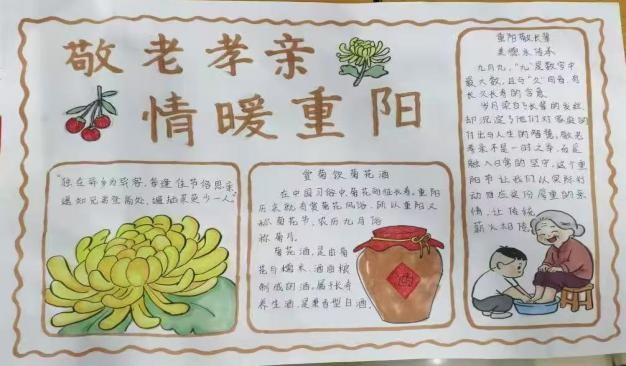 敬老孝亲
情暖重阳
"独在异乡为异客，每逢佳节倍思亲
遥知兄弟登高处，遍插茱萸少一人"
赏菊饮菊花酒
在中国习俗中菊花向征长寿。重阳
历来就有赏菊花风俗，所以重阳又
称菊花节，农历九月俗
称菊月。
菊花酒，是由菊
花与糯米、酒曲酿
制成的酒。属于长寿
养生酒，是兼香型白酒。
酒
重阳敬长辈
美德永传承
九月九，"九"是数字中
最大数，且与"久"同音，有
长久长寿的含意。
岁月染白了长辈的发丝，
却沉淀了他们对家庭的
付出与人生的智慧，敬老
孝亲不是一时之举，而是
融入日常的坚守，这个重
阳节让我们以实际行
动回应这份厚重的亲
情，让传统
薪火相传